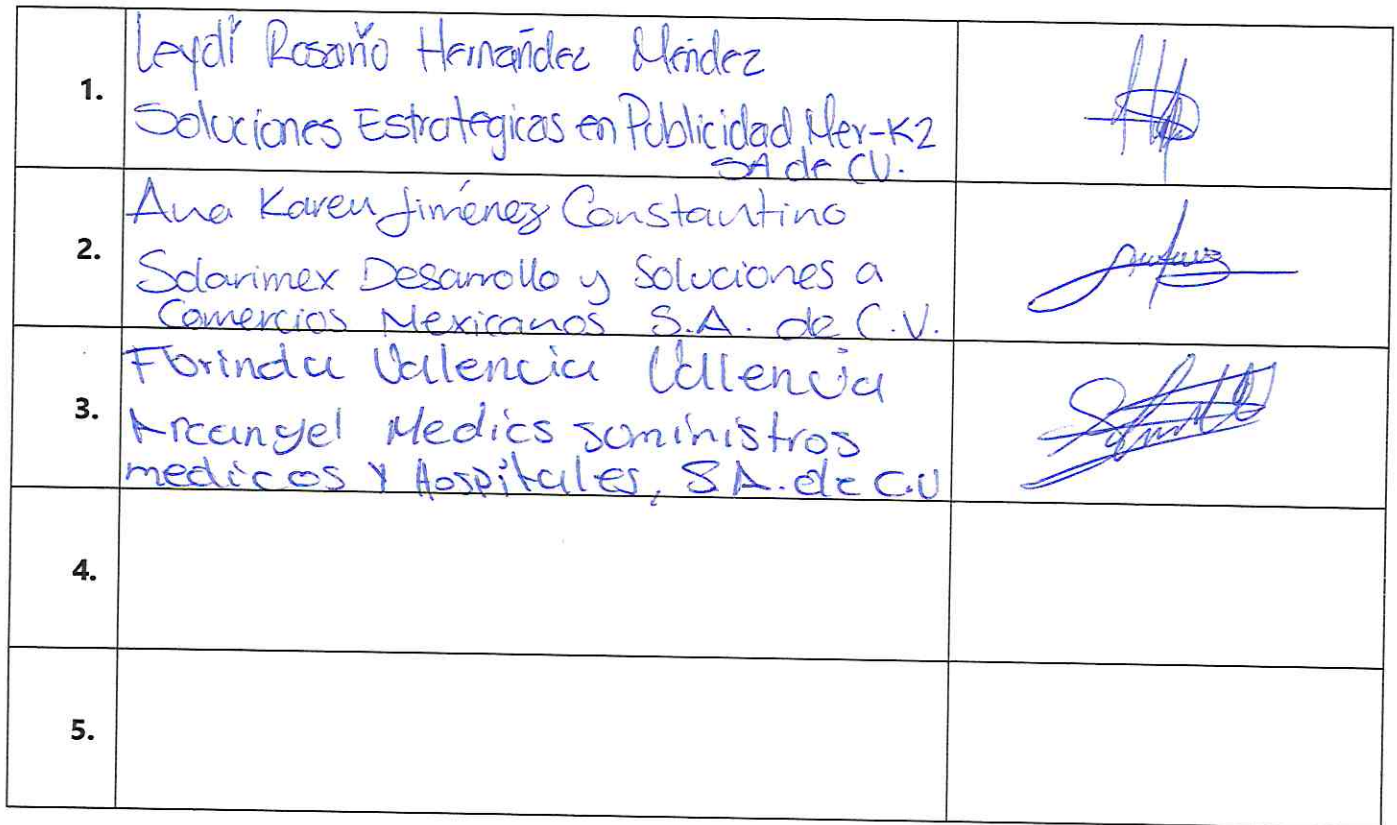 1.
Leydi Rosario Hernández Méndez
Soluciones Estrategicas en Publicidad Mer-K2
SA de CV.
2.
Ana Karen Jiménez Constantino
Solarimex Desarrollo y Soluciones a
Comercios Mexicanos S.A. de C.V.
3.
Florinda Valencia Vallencia
Arcangel Medics suministros
medicos Y Hospitales, S.A. de C.V
4.
5.